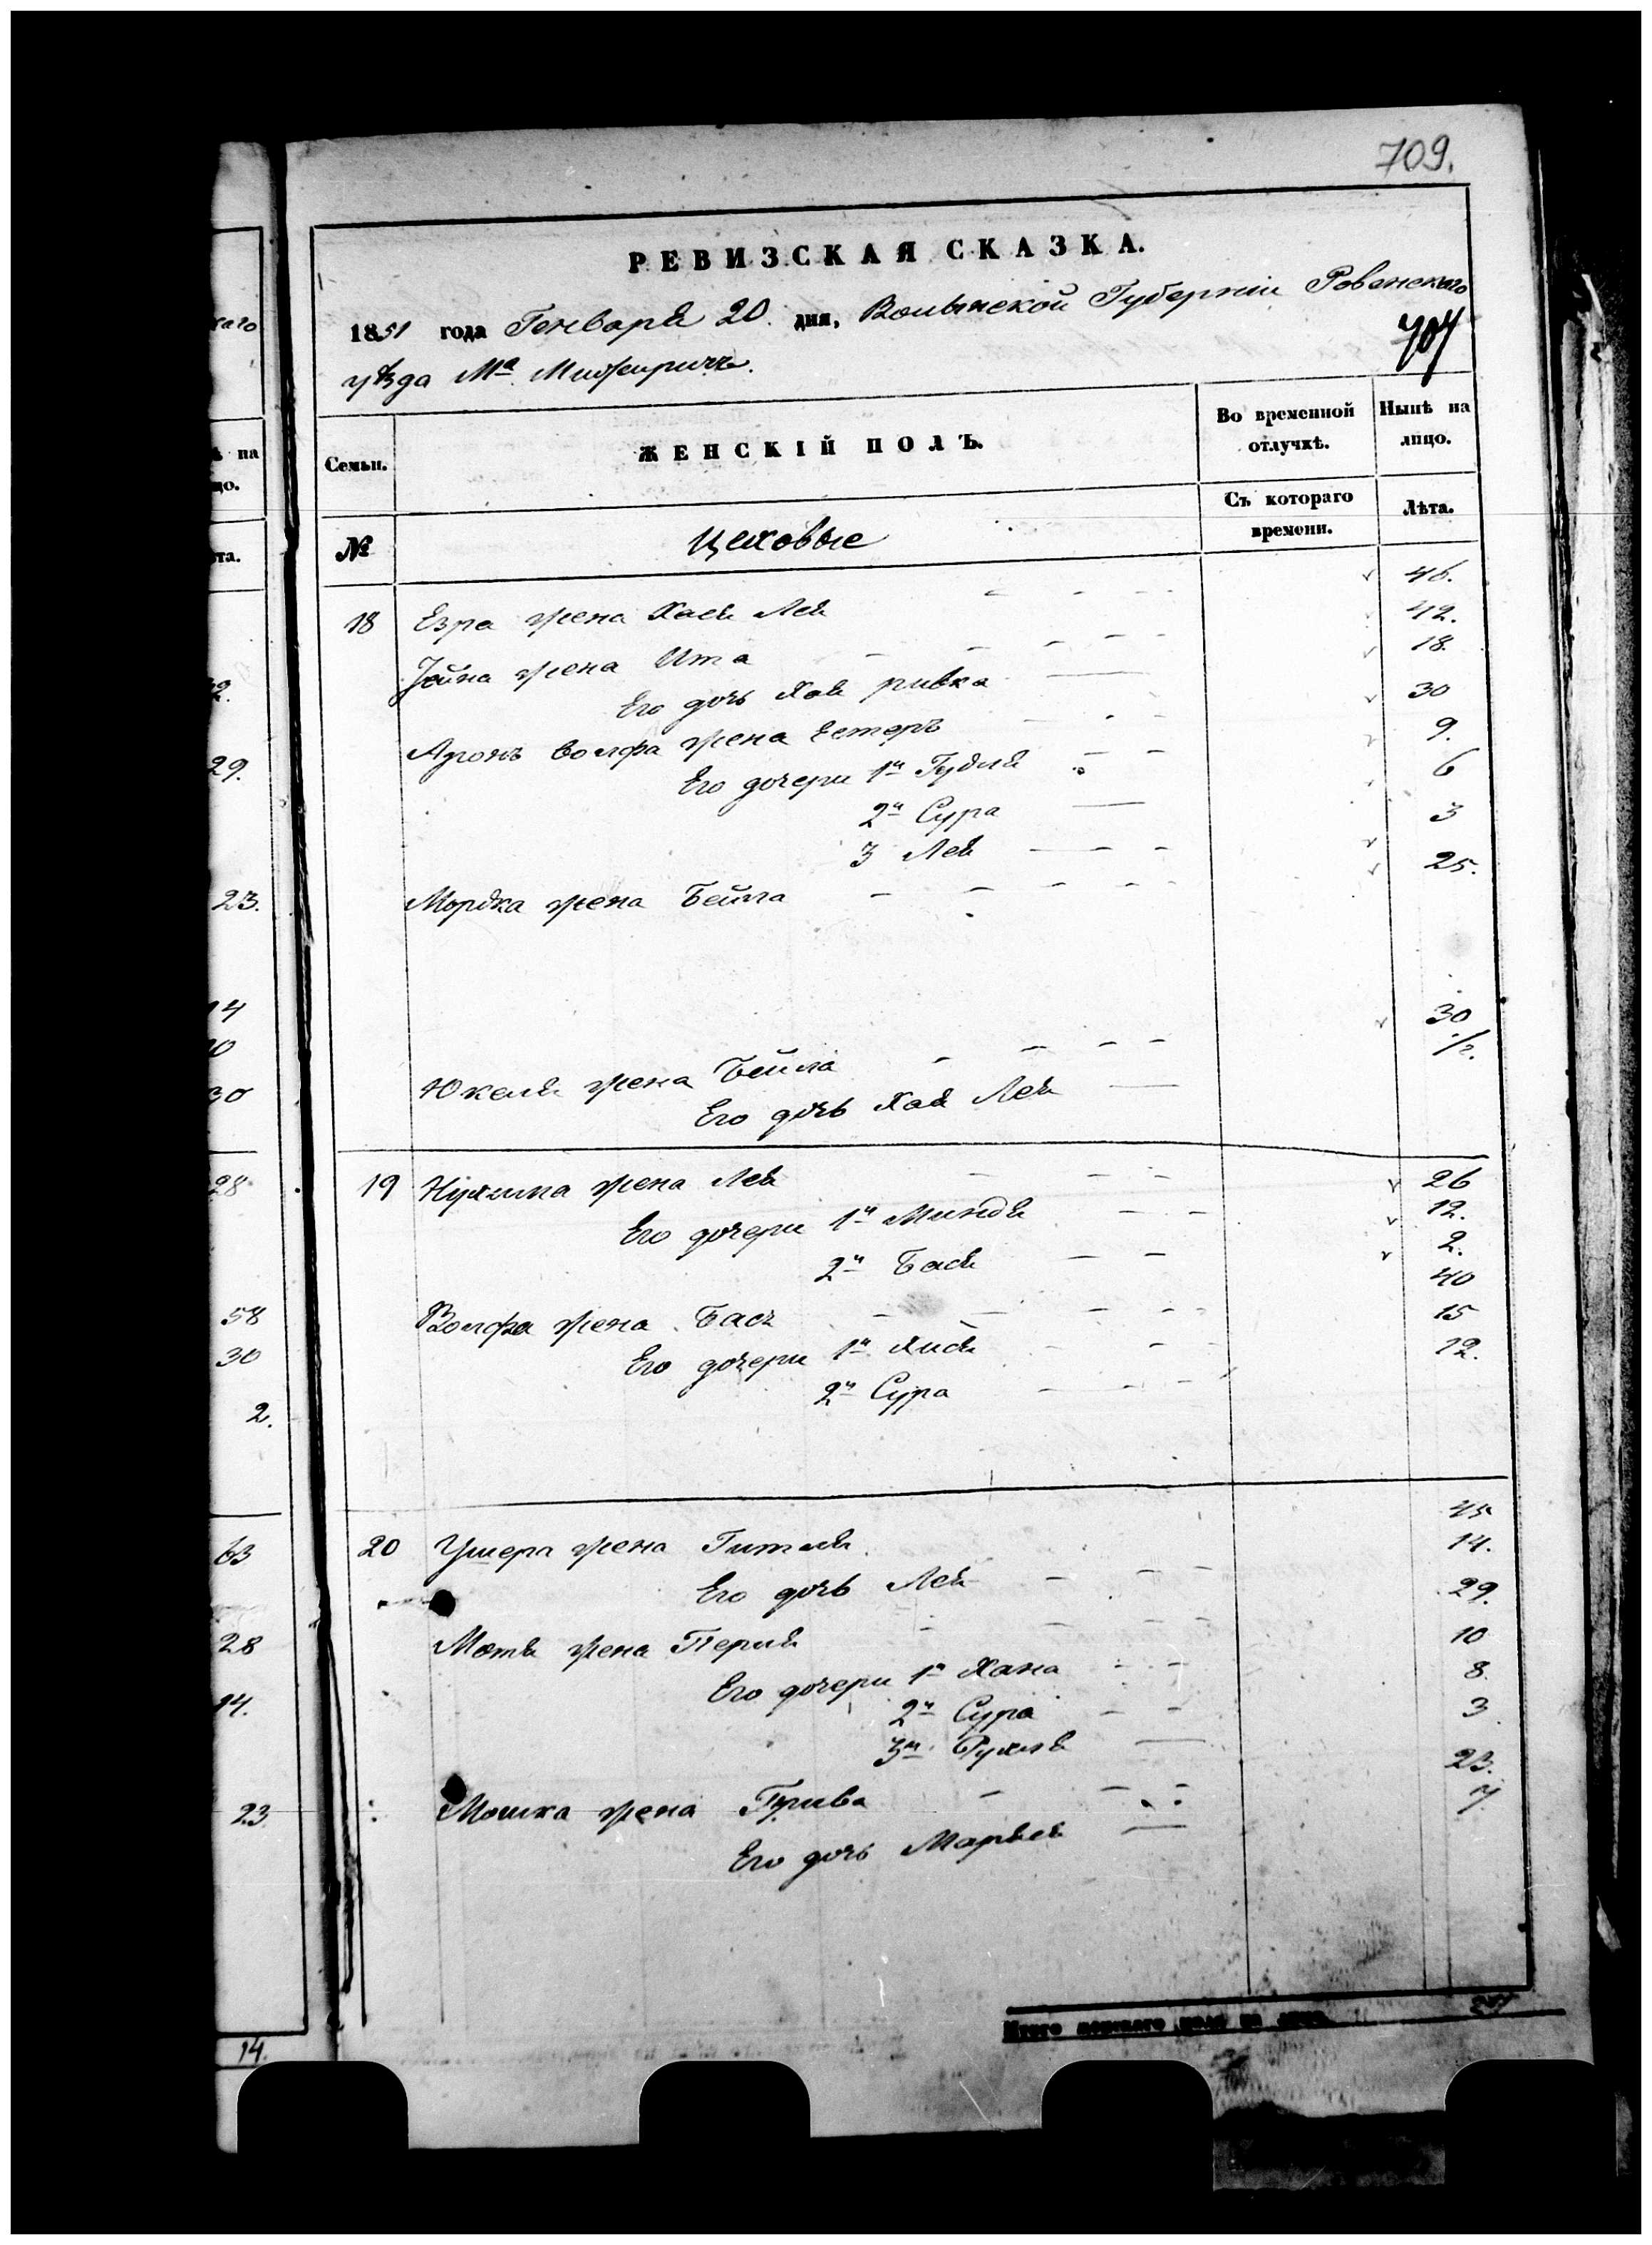 709.
РЕВИЗСКАЯ СКАЗКА.
1851 года Генваря 20 дня, Волынской Губерніи Ровенскаго
уѣзда Мª Мижиричъ.
707
Семьи.
ЖЕНСКІЙ ПОЛЪ.
Во временной отлучкѣ.
Нынѣ на лицо.
№
Цеховые
Съ котораго времени.
Лѣта.
18 Езра жена Хая Лея - - - 46.
Іойна жена Ита - - - - 42.
Его дочь Хая ривка — 18.
Аронъ волфа жена Естеръ - - - 30
Его дочери 1я Гудля - - 9.
2я Сура — 6
3 Лея - - - 3
Мордка жена Бейла - - - - - 25.
Юкеля жена Бейла - - - - 30
Его дочь Хая Лея — 1/2.
19 Нухима жена Лея - - - 26
Его дочери 1я Миндя - - - 12.
2я Бася - - 2.
Волфа жена Бася - - - - - 40
Его дочери 1я Хися - - - 15
2я Сура - - - 12.
20 Ушера жена Гитля 45
Его дочь Лея - - - 14.
Мотя жена Перля - - - - 29.
Его дочери 1я Хана - - 10
2я Сура - - 8.
3я Рухля — 3
Мошка жена - - - 23.
Его дочь Марьем — 7.
Итого женскаго пола на лицо.
каго
ѣ на
цо.
ѣта.
29.
23.
14
10
30
28
58
30
2.
63
28
14.
23.
14.